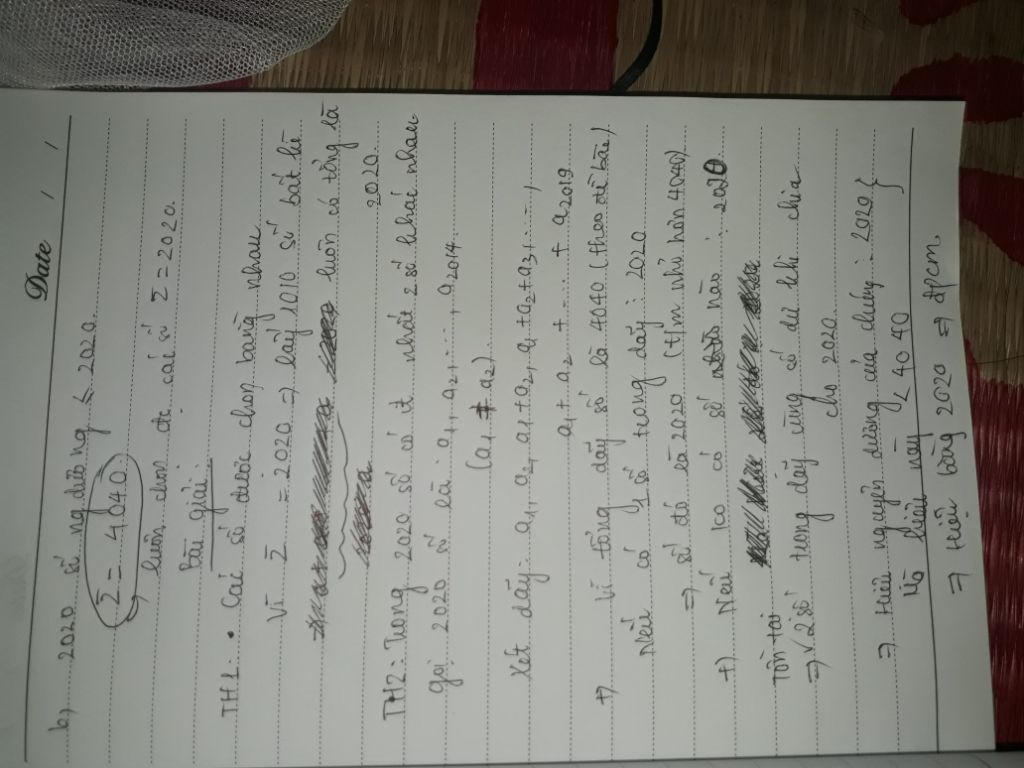 Date / /
b, 2020 số ng dương ≤ 2020.
Σ = 4040.
luôn chọn đc các số Σ = 2020.
Bài giải:
TH1: • Các số được chọn bằng nhau
Vì Σ = 2020 ⇒ lấy 1010 số bất kì
luôn có tổng là
2020
TH2: Trong 2020 số có ít nhất 2 số khác nhau
gọi 2020 số là: a1, a2, ..., a2014.
(a1 ≠ a2)
Xét dãy: a1, a2, a1 + a2, a1 + a2 + a3, ...,
a1 + a2 + ... + a2019
+) Vì tổng dãy số là 4040 (theo đề bài)
Nếu có 1 số trong dãy ⋮ 2020
⇒ số đó là 2020 (t/m nhỏ hơn 4040)
+) Nếu ko có số nào ⋮ 2020
Tồn tại
⇒ 2 số trong dãy cùng số dư khi chia
cho 2020
⇒ Hiệu nguyên dương của chúng ⋮ 2020 }
Mà hiệu này < 4040
⇒ Hiệu bằng 2020 ⇒ đpcm.